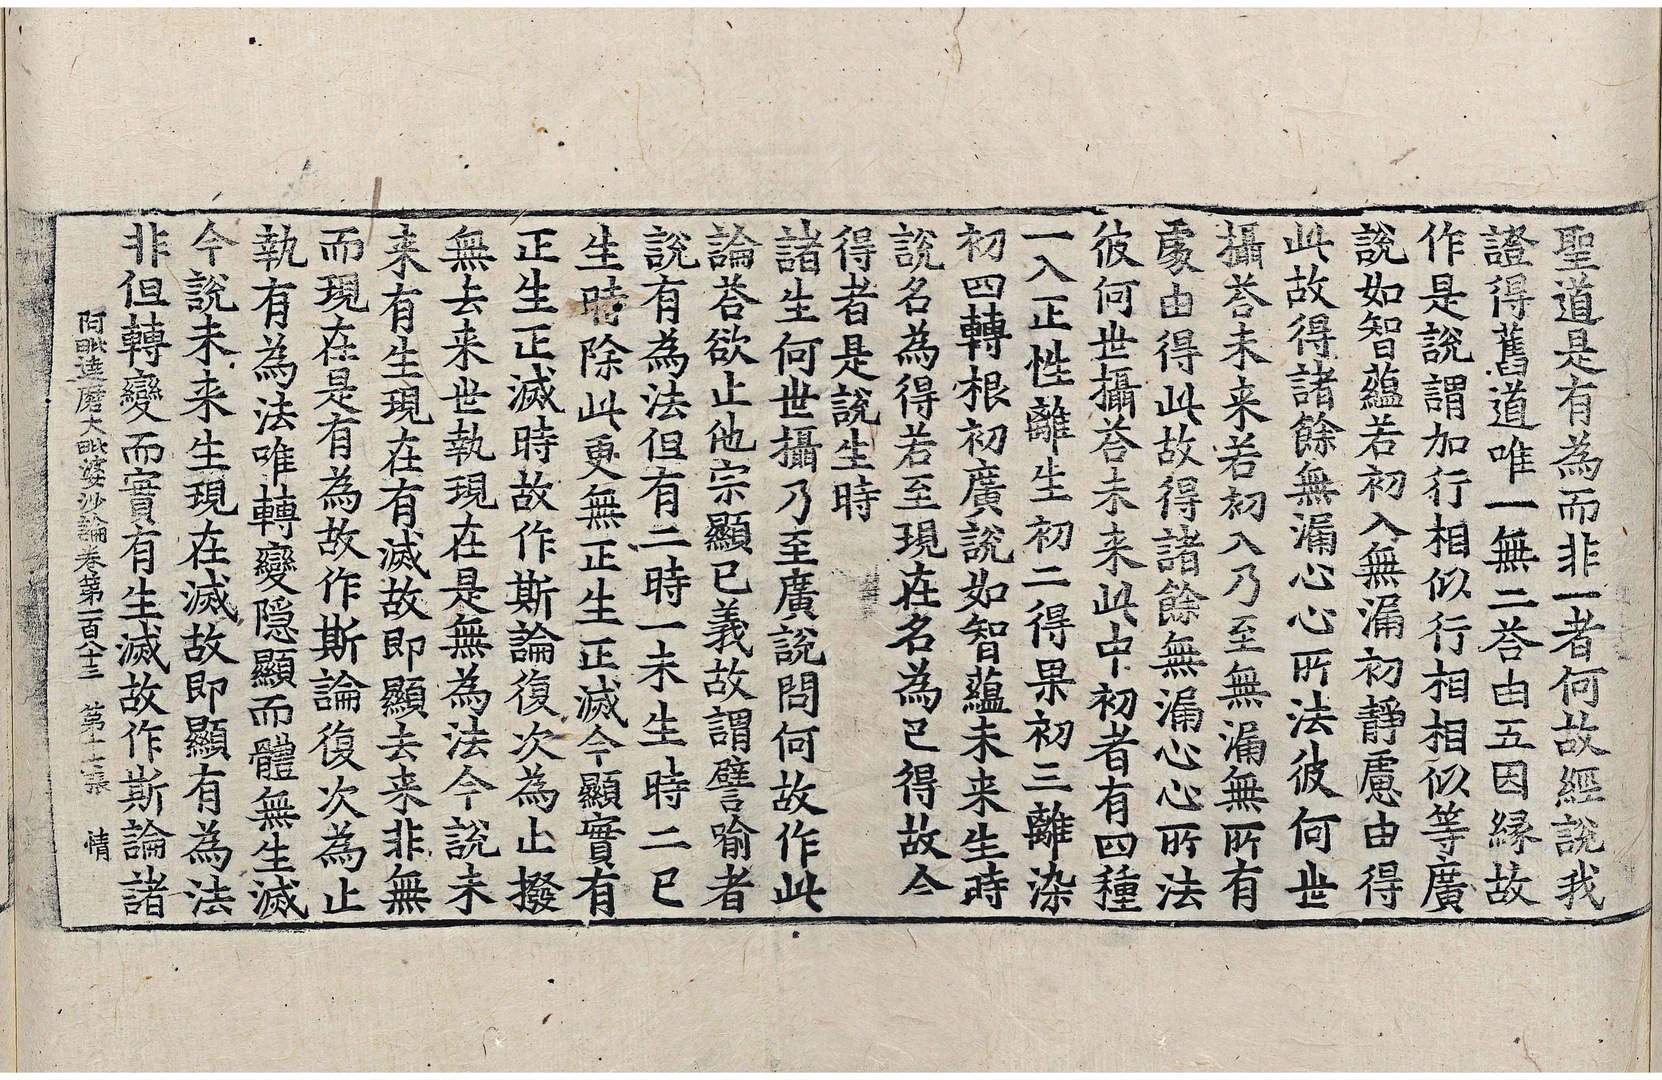 聖道是有為而非一者何故經說我
證得舊道唯一無二荅由五因縁故
作是說謂加行相似行相相似等廣
說如智蘊若初入無漏初靜慮由得
此故得諸餘無漏心心所法彼何世
攝荅未来若初入乃至無漏無所有
處由得此故得諸餘無漏心心所法
彼何世攝荅未来此中初者有四種
一入正性離生初二得果初三離染
初四轉根初廣說如智蘊未来生時
說名為得若至現在名為已得故今
得者是說生時
諸生何世攝乃至廣說問何故作此
論荅欲止他宗顯已義故謂譬喻者
說有為法但有二時一未生時二已
生時除此更無正生正滅今顯實有
正生正滅時故作斯論復次為止撥
無去来世執現在是無為法今說未
来有生現在有滅故即顯去来非無
而現在是有為故作斯論復次為止
執有為法唯轉變隱顯而體無生滅
今說未来生現在滅故即顯有為法
非但轉變而實有生滅故作斯論諸
阿毗達磨大毗婆沙論卷第一百八十三 第十七張 情